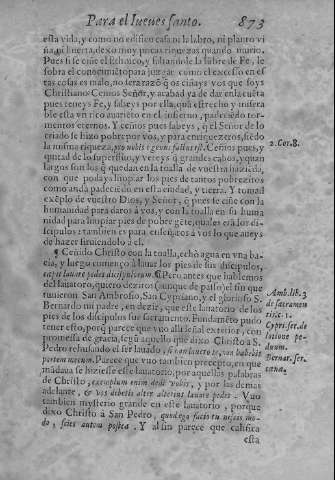 Para el Iueues santo. 873
esta vida, y como no edifico casa ni la labro, ni planto vi
ña, ni huerta, dexo muy pocas riquezas quando murio.
Pues si se ciñe el lienço, y faltandole la labre de Fe, le
sobra el conocimiẽto para juzgar como el excesso en es
tas cosas es malo, no sera razõ q̃ os ciñays vos que soys
Christiano? Ceñios Señor, y acabad ya de dar en la cuẽta
pues teneys Fe, y sabeys por ella, quã estrecho y misera
ble esta vn rico auariẽto en el infierno, padeciẽdo tor-
mentos eternos. Y ceñios pues sabeys, q̃ el Señor de lo
criado se hizo pobre por vos, y para enriqueceros, siẽdo
la misma riqueza, pro nobis egenus factus est. Ceñios pues, y
quitad de lo superfluo, y vereys q̃ grandes cabos, y quan
largos son los q̃ quedan en la toalla de vuestra haziẽda,
con que podays limpiar los pies de tantos pobrezitos
como anda padeciẽdo en esta ciudad, y tierra. Y tomad
exẽplo de vuestro Dios, y Señor, q̃ pues se ciñe con la
humanidad para daros a vos, y con la toalla en su huma
nidad para limpiar pies de pobre gẽte, quales erã los di-
scipulos: tambien es para enseñaros a vos lo que aueys
de hazer siruiendole a el.
¶ Ceñido Christo con la toalla, echò agua en vna ba-
cia, y luego começò a lauar los pies de sus discipulos,
cœpit lauare pedes discipulorum. ¶ Pero antes que hablemos
del lauatorio, quiero deziros (aunque de passo) el sin que
tuuieron San Ambrosio, San Cypriano, y el glorioso S.
Bernardo mi padre, en dezir, que este lauatorio de los
pies de los discipulos fue sacramento. Fundamẽto pudo
tener esto, porq̃ parece que vuo alli señal exterior, con
promessa de gracia, segũ aquello que dixo Christo a S.
Pedro rehusando el ser lauado, si non lauero te, non habebis
partem mecum. Parece que vuo tambien precepto, en que
mãdaua se hiziesse este lauatorio, por aquellas palabras
de Christo, exemplum enim dedi vobis, y por las demas
adelante, & vos debetis alter alterius lauare pedes. Y vuo
tambien mysterio grande en este lauatorio, porque
dixo Christo à San Pedro, quod ego facio tu nescis mo-
do, scies autem postea. Y al fin parece que califica
esta
2. Cor. 8.
Amb. lib. 3
de sacramen
tis. c. 1.
Cypri. ser. de
lotione pe-
dum.
Bernar. ser.
cæna.